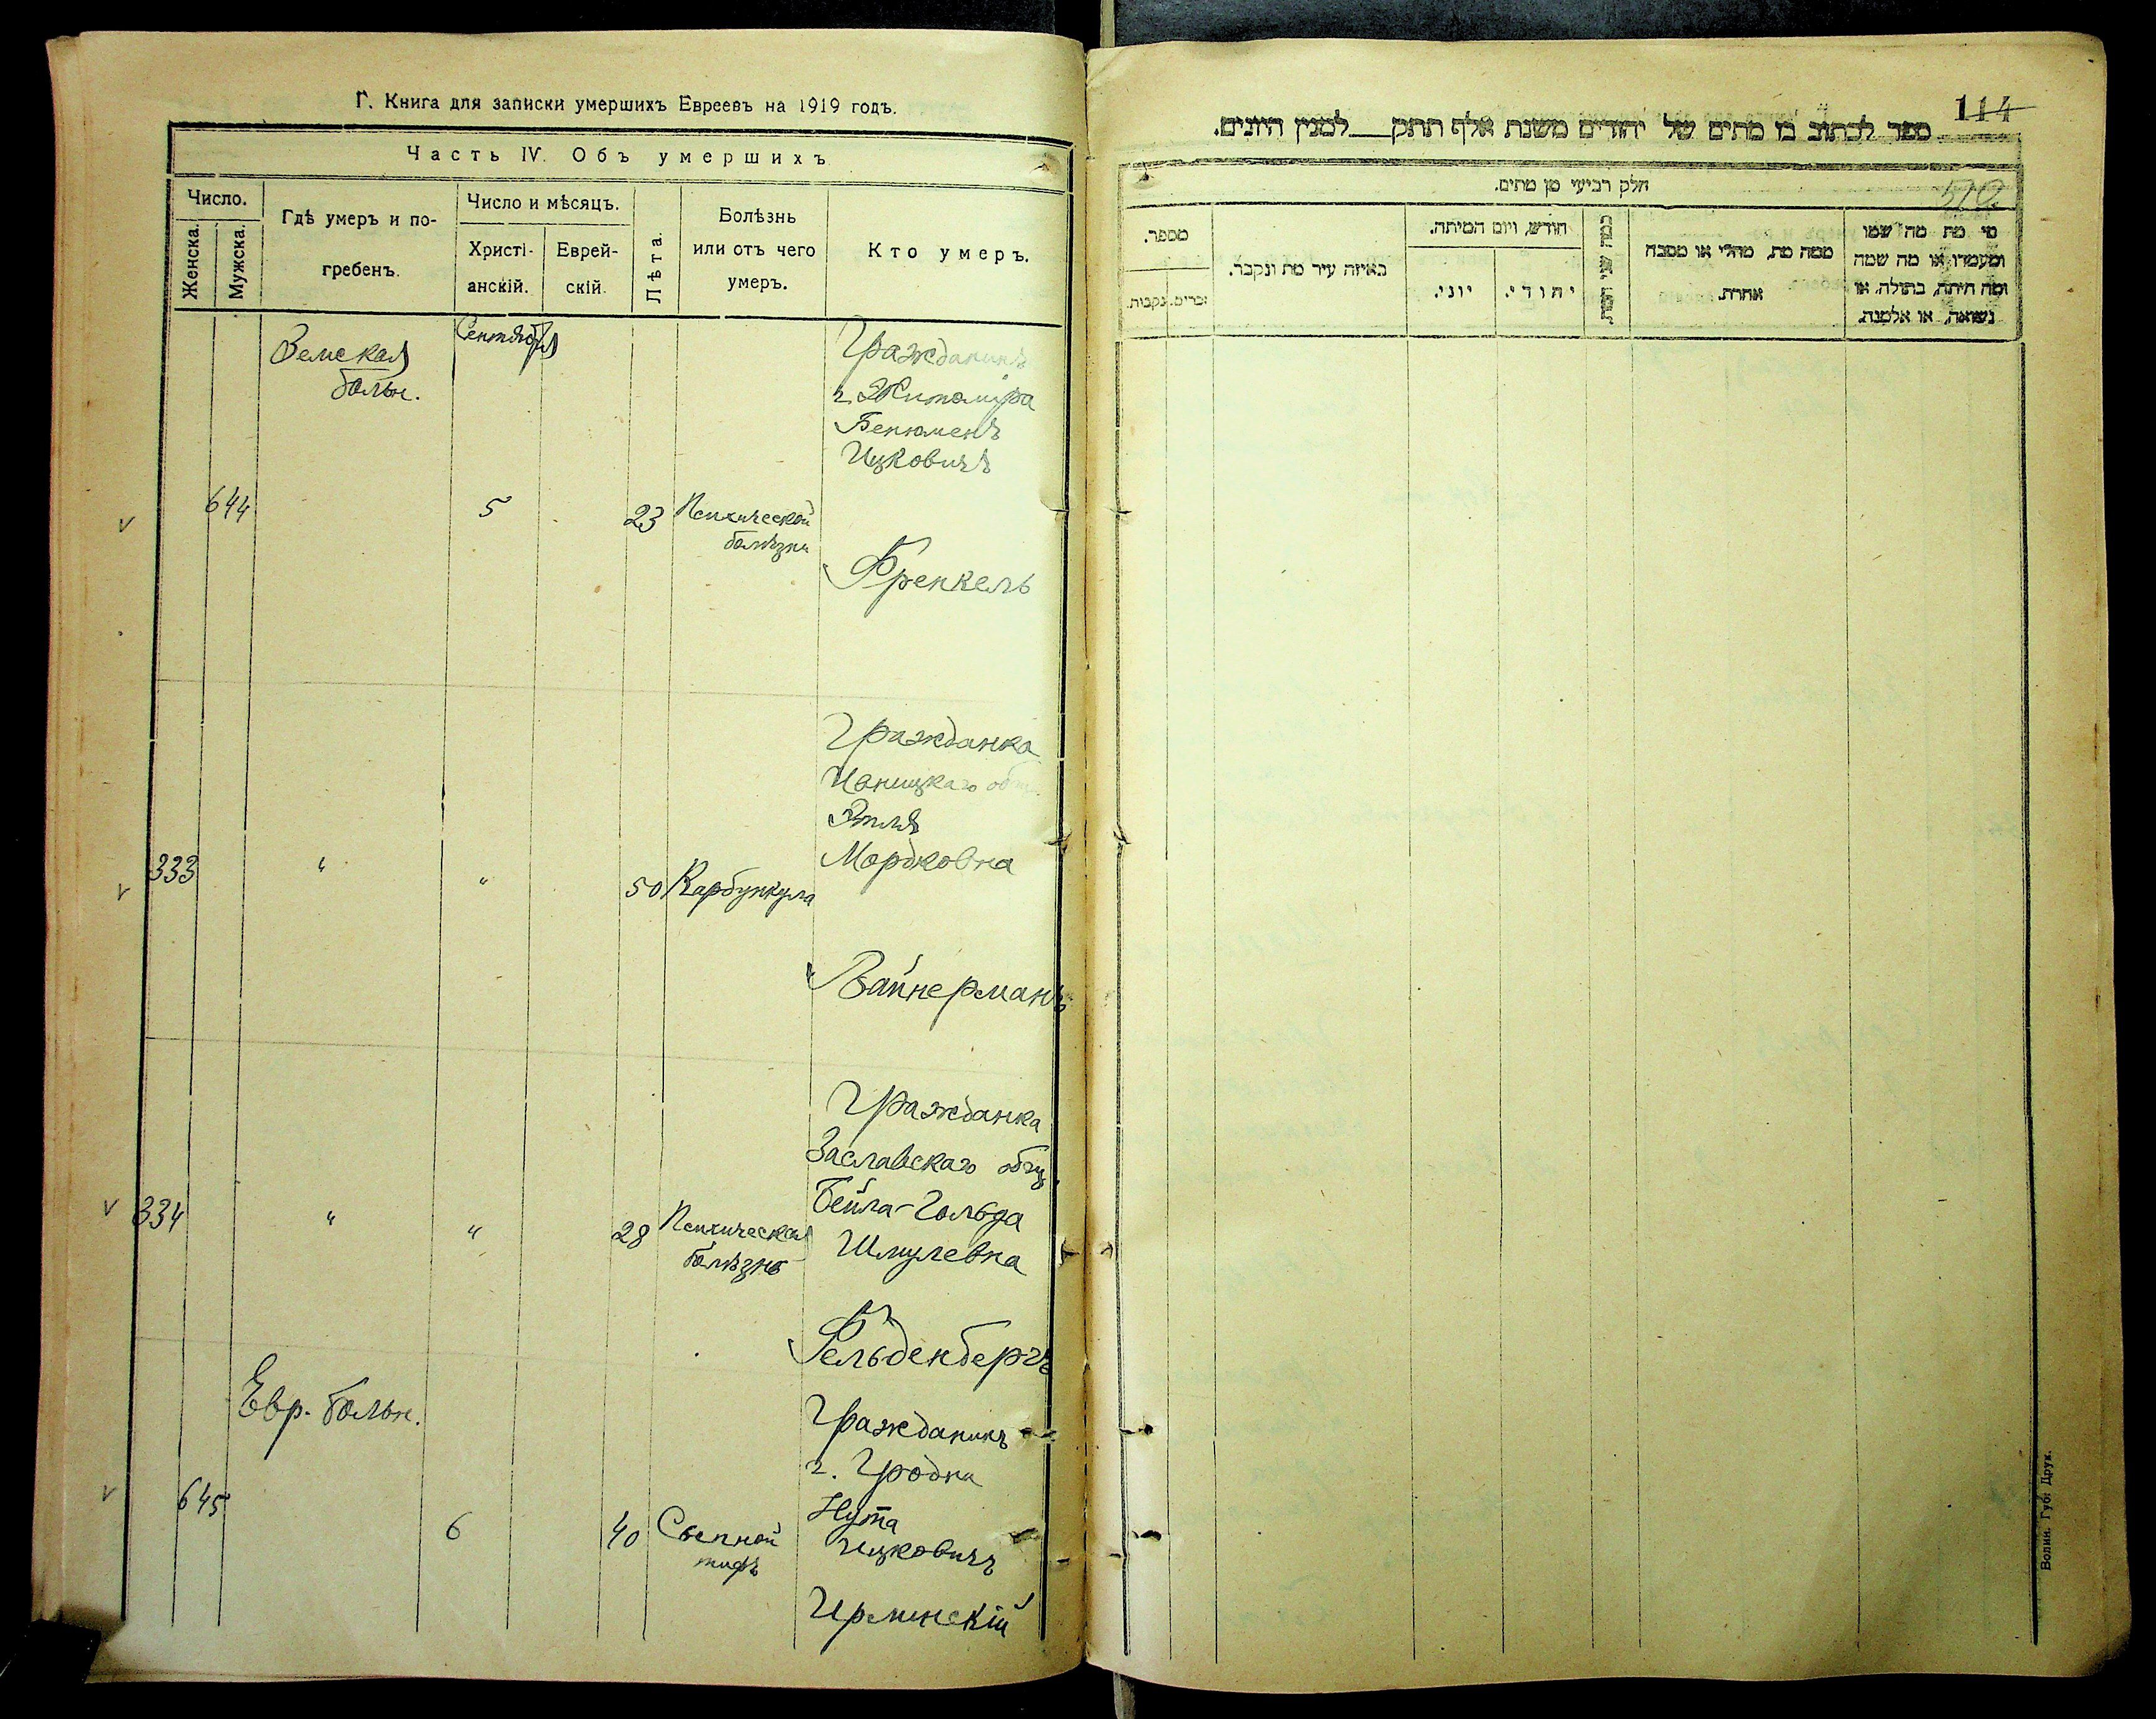 Г. Книга для записки умершихъ Евреевъ на 1919 годъ.
Часть IV. Объ умершихъ
Число.
Женска.
Мужска.
Гдѣ умеръ и по-
гребенъ.
Число и мѣсяцъ.
Христі-
анскій.
Еврей-
скій.
Лѣта.
Болѣзнь
или отъ чего
умеръ.
Кто умеръ.
Земская
больн.
Сентября
Гражданинъ
г. Житомира
Ицковичъ
644
5
23
Психической
болѣзни
Френкель
Гражданка
Мордковна
333
"
"
50
Карбункула
Вайнерманъ
Гражданка
Заславскаго общ.
Бейла-Гольда
Шмулевна
334
"
"
28
Психическая
болѣзнь
Фельденбергъ
Евр. больн.
Гражданинъ
г. Гродна
Нута
Ицковичъ
645
6
40
Сыпной
тифъ
Ирминскій
114
510
ספר לכתוב בו מתים של יהודים משנת אלף תתק___למנין היונים.
חלק רביעי מן מתים.
מספר.
זכרים.
נקבות.
באיזה עיר מת ונקבר.
חודש, ויום המיתה.
יוני.
יהודי.
ממה מת, מחלי או מסבה
אחרת.
מי מת מה שמו
ומעמדו, או מה שמה
ומה היתה, בתולה, או
נשואה, או אלמנה.
Волин. Губ. Друк.